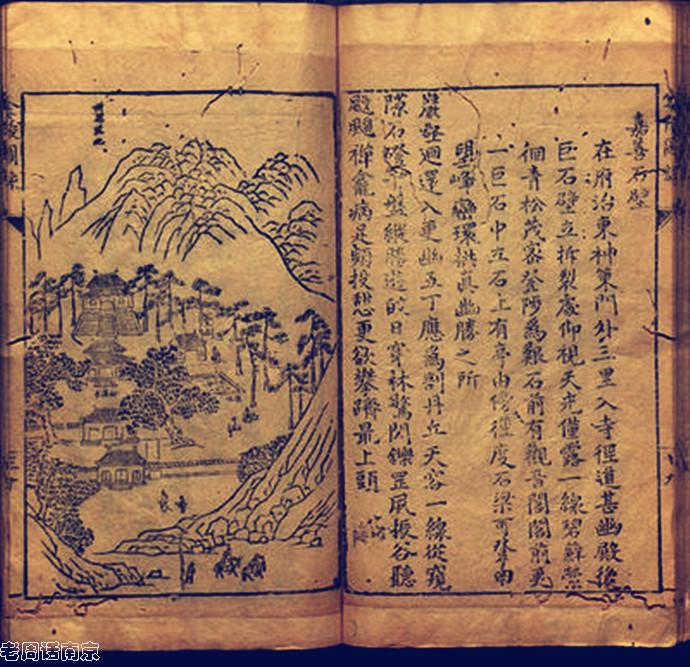 嘉善石壁
在府治東神策門外三里入寺徑道甚幽殿後
巨石壁立拆裂處仰視天光僅露一線碧蘚縈
徊青松茂密登陟為艱石前有觀音閣閣前更
一巨石中立石上有亭由傍徑度石梁可登
望峰巒環拱真幽勝之所
巖壑迴還入更幽五丁應為割丹丘天容一線從窺
隙石磴千盤縱勝遊的日穿林驚閃鑠罡風振谷聽
颼飀禪龕病足頻投憩更欲攀躋最上頭
老周话南京